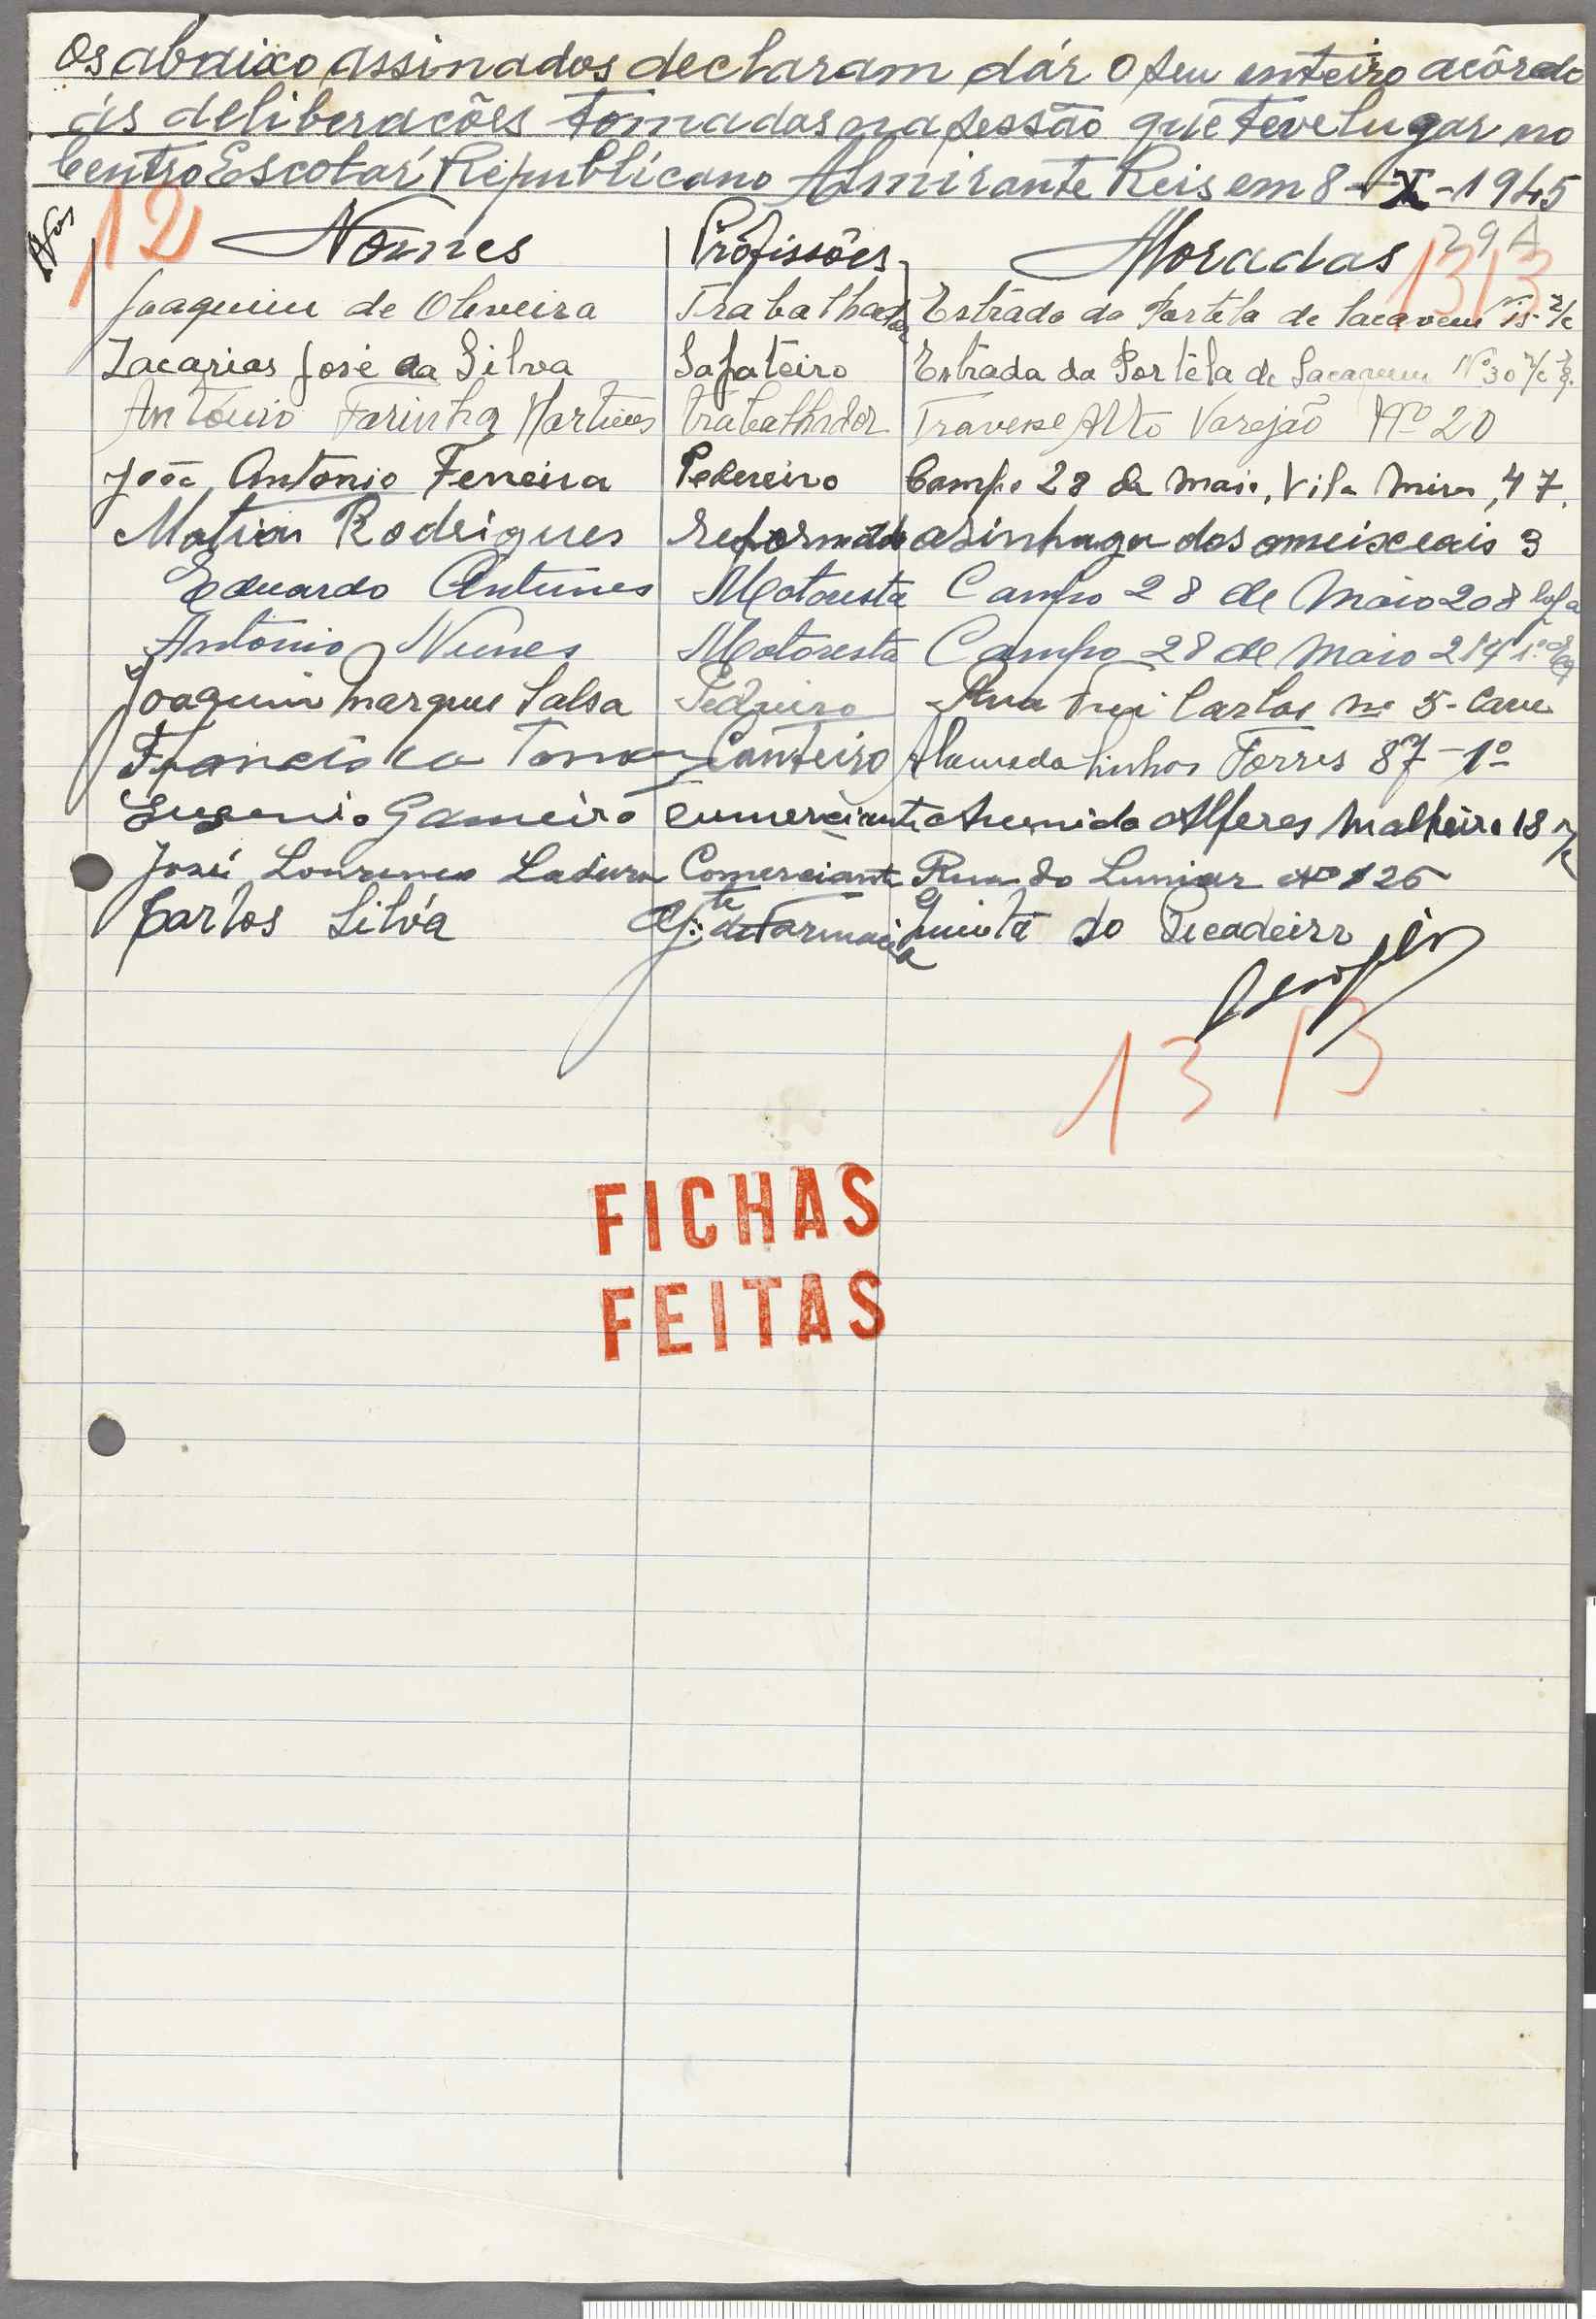 Os abaixo assinados decláram dár o seu enteiro acôrdo
ás deliberacões tomadas na sessão que teve lugar no
Centro Escolar Republicano Almirante Reis em 8-X-1945
12 Nomes Profissões Moradas 29A
1313
Joaquim de Oliveira Trabalhador Estrada da Portela de Sacavem nº 15 r/c
Zacarias José da Silva Safateiro Estrada da Portéla de Sacavem Nº 30 r/c
António Farinha Martins trabalhador Travese Alto Varejão Nº 20
João Antonio Ferreira Pedereiro Campo 28 de Maio, Vila Mira, 47.
Matias Rodrigues reformado asinhaga dos ameixeais 3
Eduardo Antunes Motorista Campo 28 de Maio 208
Antonio Nunes Motoresta Campo 28 de Maio 214 1º
Joaquim Marques Salsa Pedreiro Rua Frei Carlos nº 5- Cave
Francisco Tomaz Canteiro Alameda Linhas Torres 87-1º
Eugenio Gameiro Cumerciante Avenida Alferes Malheiro 18 r/c
José Lourenco Comerciante Rua do Lumiar Nº 126
Carlos Silva Ajte de Farmacia Quinta do Picadeiro
1313
FICHAS
FEITAS